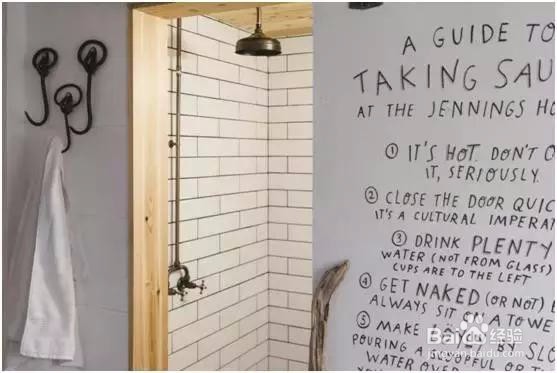 A GUIDE TO
TAKING SAU
AT THE JENNINGS HO
① IT'S HOT. DON'T O
IT, SERIOUSLY.
② CLOSE THE DOOR QUIC
IT'S A CULTURAL IMPERAT
③ DRINK PLENTY
WATER (NOT FROM GLASS)
CUPS ARE TO THE LEFT
④ GET NAKED (OR NOT)
ALWAYS SIT ON A TOWE
⑤ MAKE
BY SLO
POURING A SPOONFUL OR
WATER OVER
Baidu经验
jingyan.baidu.com